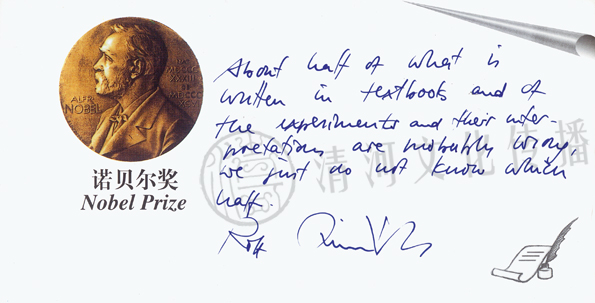 ALFR
NOBEL
诺贝尔奖
Nobel Prize
About half of what is
written in textbooks and of
the experiments and their inter-
pretations are probably wrong
we just do not know which
half.
Rolf
清河文化传播